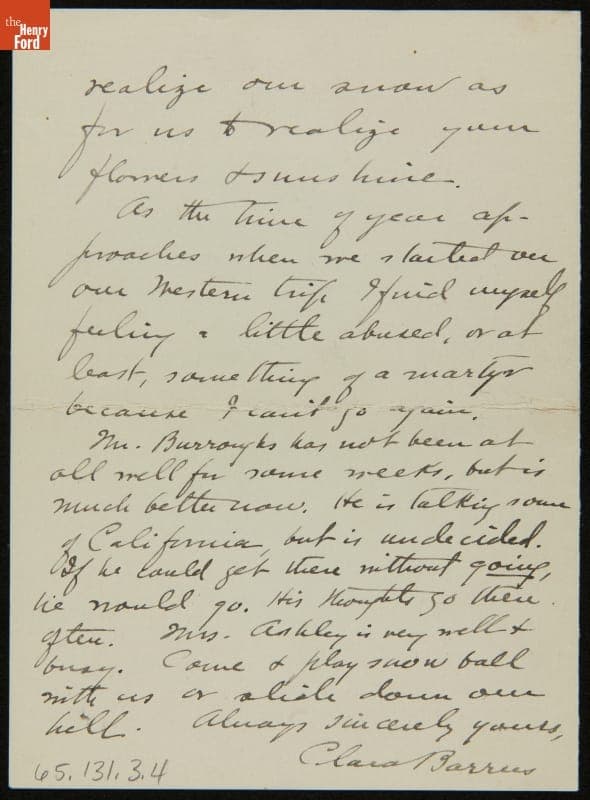 the
Henry
Ford
realize our snow as
for us to realize your
flowers & sunshine.
As the time of year ap-
proaches when we started on
our Western trip I find myself
feeling a little abused, or at
least, something of a martyr
because I can't go again.
Mr. Burroughs has not been at
all well for some weeks, but is
much better now. He is talking some
of California, but is undecided.
If he could get there without going,
he would go. His thoughts go there
often. Mrs. Ashley is very well &
busy. Come & play snow ball
with us or slide down our
hill. Always sincerely yours,
Clara Barrus
65.131.3.4